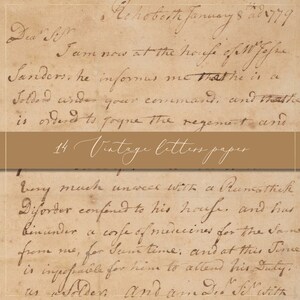 Rehoboth January 8th 1779
Dear Sir
I am now at the house of Mr Josea
Sanders, he informes me that he is a
Soldor under your command, and that he
is ordered to joyne the regement and
14 Vintage letters paper
very much unwell with a Rumatick
Disorder confined to his house, and has
under a corse of medicines for the Same
from me, for Sum time, and at this Time
is impossable for him to attend his Duty.
as a Soldor and am Dr Sr with